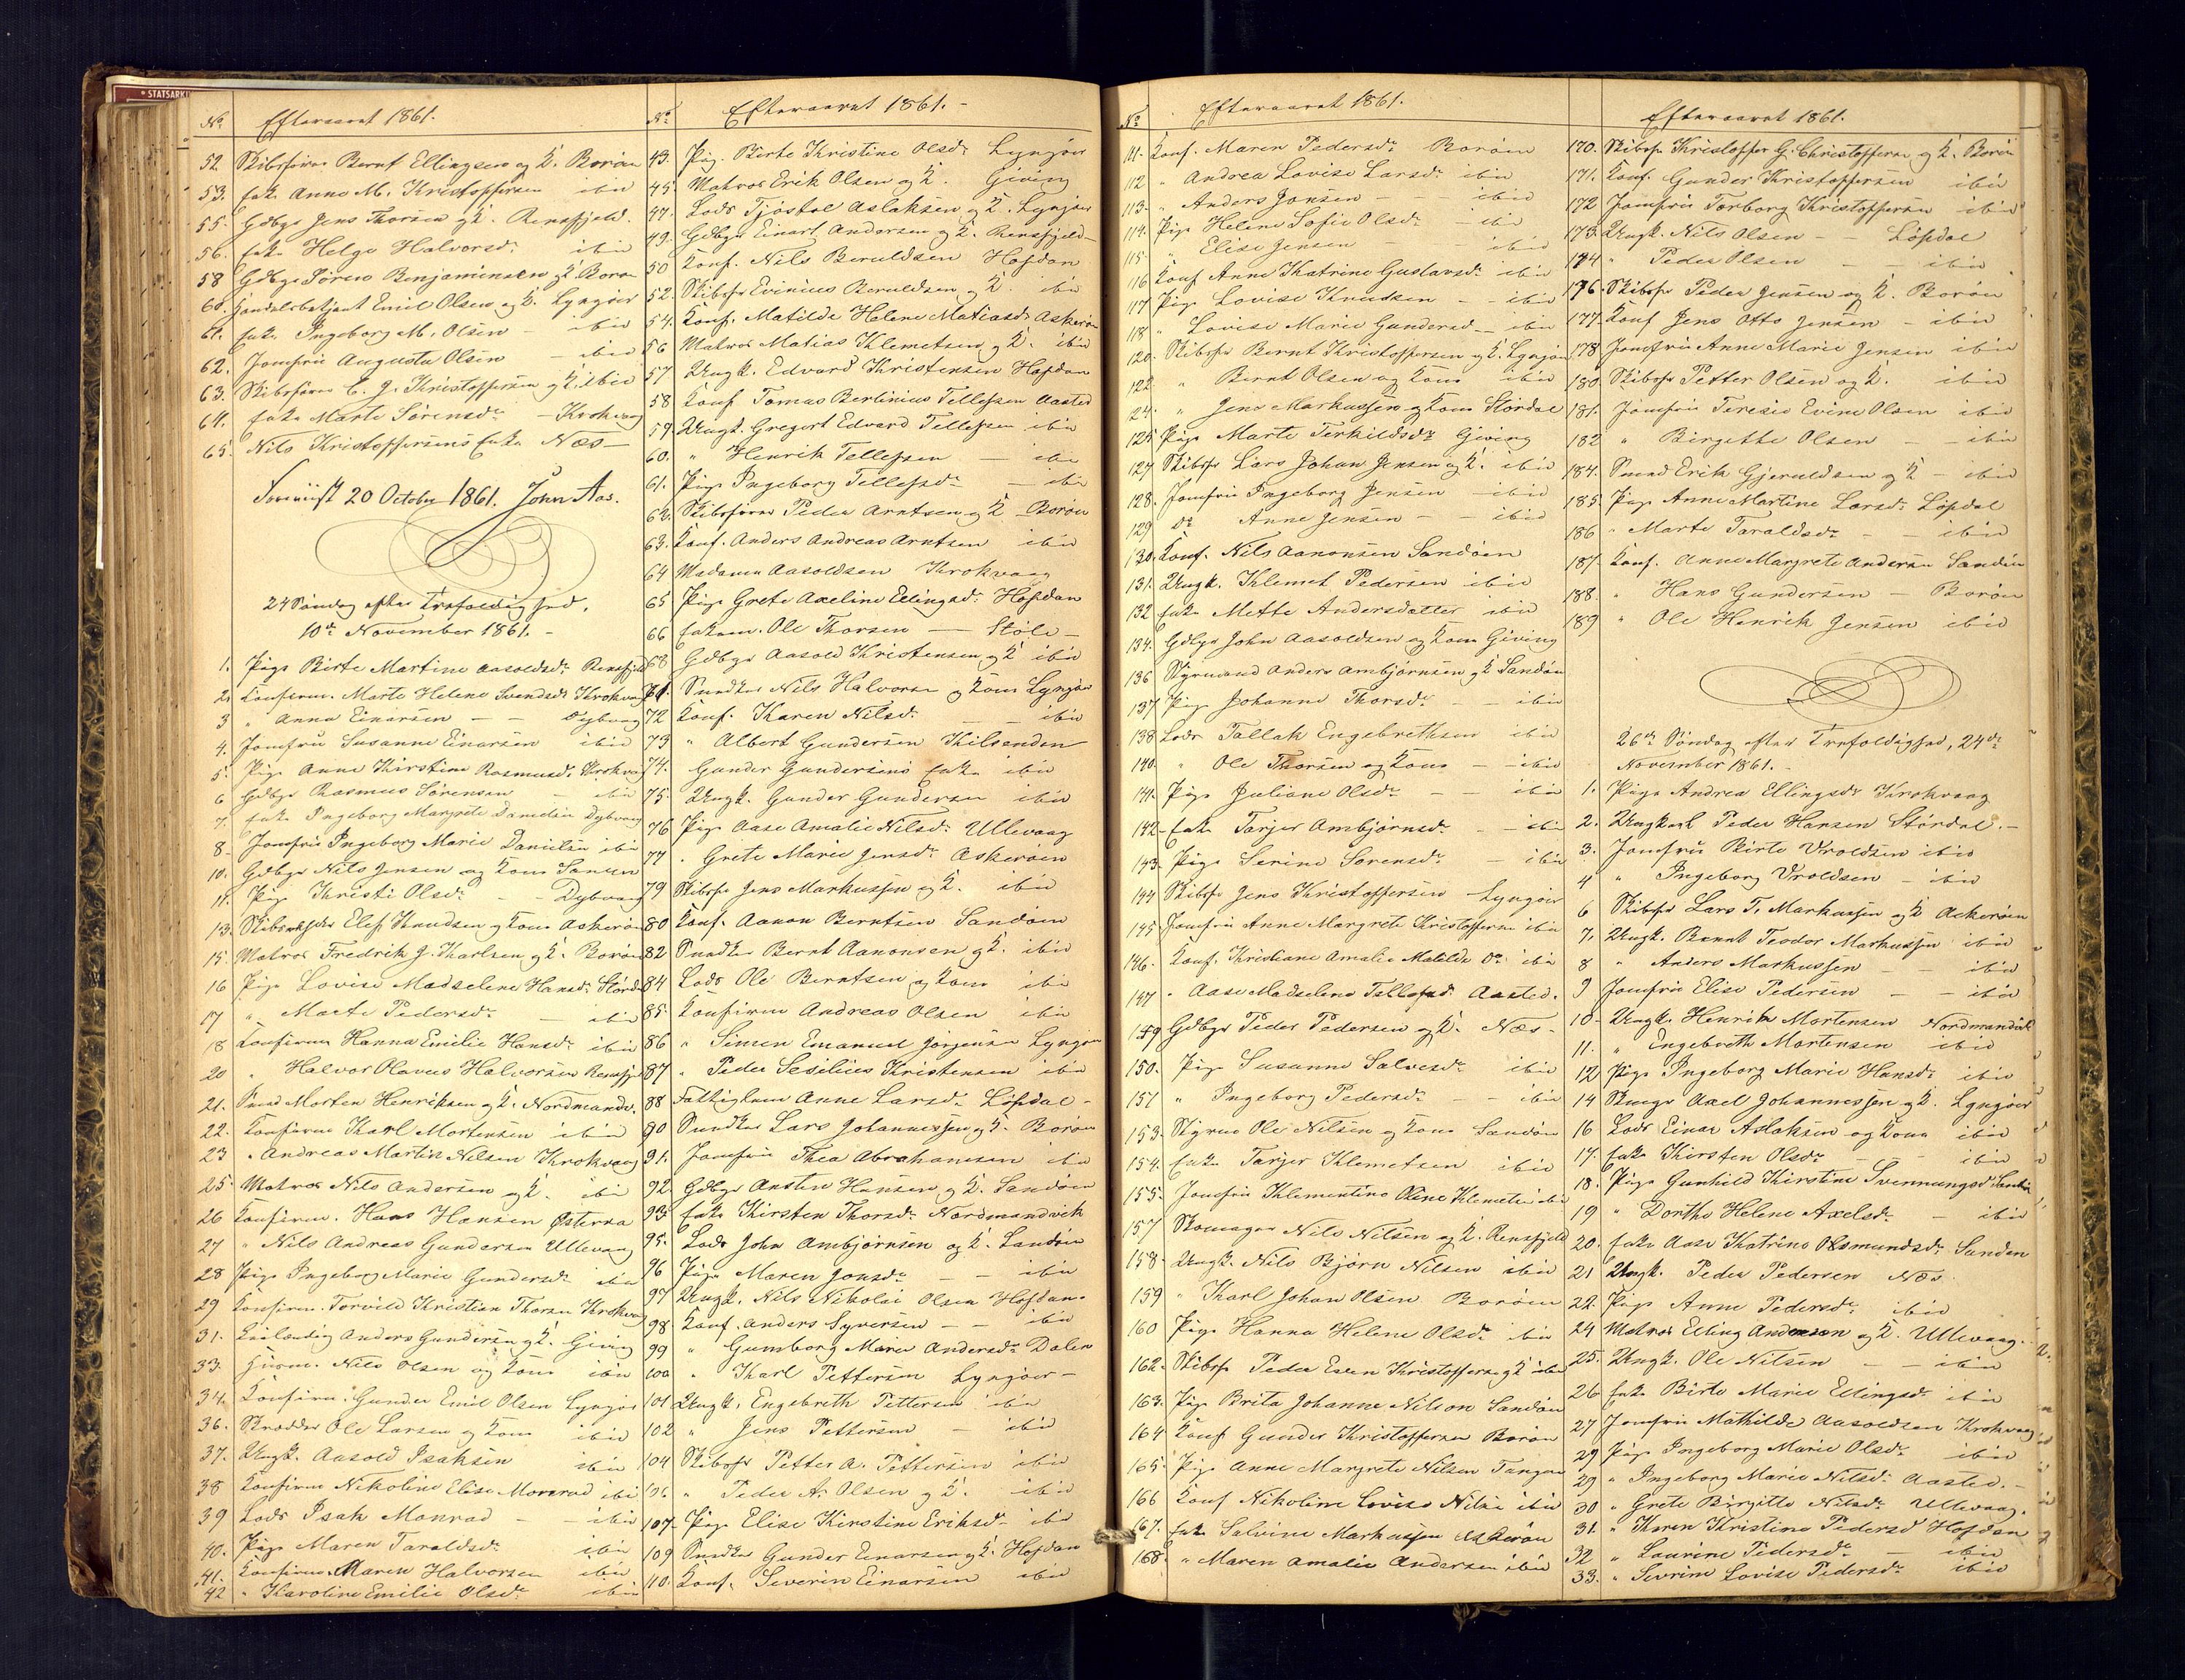 STATSARKI
No. Efteraaret 1861.
52. Skibsfører Bernt Ellingsen og K. Borøen
53. Enke Anne M. Kristoffersen ibid
55. Gdbgr Jens Thorsen og K. Rensfjeld.
56. Enke Helge Halvorsdr ibid
58 Gdbgr Søren Benjaminsen og K. Borøen
60. Handelsbetjent Emil Olsen og K. Lyngøer
61. Enke Ingeborg M. Olsen - ibid
62. Jomfru Auguste Olsen - ibid
63. Skibsfører C. J. Kristoffersen og K. ibid
64. Enke Marte Sørensdr - Krokvaag
65. Nils Kristoffersens Enke Næs -
20 October 1861. John Aas.
24 Søndag efter Trefoldighed,
10de November 1861. -
1. Pige Birte Martine Aasoldsdr Rensfjeld
2. Konfirm. Marte Helene Svendsdr Krokvaag
3 " Anna Einarsen - - Dybvaag
4. Jomfru Susanne Einarsen ibid
5. Pige Anne Kirstine Rasmusdr Krokvaag
6 Gdbgr Rasmus Sørensen - ibid
7. Enke Ingeborg Margrete Danielsen Dybvaag
8. Jomfru Ingeborg Marie Danielsen ibid
10. Gdbgr Nils Jensen og Kone
11. Pige Kristi Olsdr - - Dybvaag
13. Elef Knudsen og Kone Askerøen
15. Matros Fredrik J. Karlsen og K. Borøen
16 Pige Lovise Madselene Hansdr Størdal
17 " Marte Pedersdr - ibid
18 Konfirm Hanna Emilie Hansdr ibid
20 " Halvor Olaves Halvorsen Rensfjeld
21. Smed Morten Henriksen og K. Nordmandv.
22. Konfirm Karl Mortensen ibid
23 " Andreas Martin Nilsen Krokvaag
25. Matros Nils Andersen og K. ibid
26 Konfirm. Hans Hansen Østeraa
27 " Nils Andreas Gundersen Ullevaag
28 Pige Ingeborg Marie Gundersdr ibid
29 Konfirm. Torvild Kristian Thorsen Krokvaag
31. Anders Gundersen og K. Giving
33. Nils Olsen og Kone ibid
34. Konfirm. Gunder Emil Olsen Lyngør
36. Skrædder Ole Larsen og Kone ibid
37. Ungk. Aasold Isaksen ibid
38 Konfirm Nikoline Elise Monrad ibid
39 Lods Isak Monrad - - ibid
40. Pige Maren Taraldsdr ibid
41. Konfirm. Maren Halvorsen ibid
42 " Karoline Emilie Olsdr ibid
No. Efteraaret 1861. -
43. Pig. Birte Kristine Olsdr Lyngøer
45. Matros Erik Olsen og K. Giving
47. Lods Tjøstol Aslaksen og K. Lyngøer
49. Gdbgr Einart Andersen og K. Rensfjeld -
50 Konf. Nils Beruldsen Hofdan
52. Skibsfr Evinius Beruldsen og K. ibid
54. Konf. Matilde Helene Matiasdr Askerøen
56 Matros Matias Klemetsen og K. ibid
57 Ungk. Edvard Kristensen Hofdan
58 Konf Tomas Bertinius Tellefsen Aasted
59. Ungk. Gregert Edvard Tellefsen ibid
60. " Henrik Tellefsen - ibid
61. Pige Ingeborg Tellefsdr - ibid
62. Skibsfører Peder Arntsen og K - Borøen
63. Konf. Anders Andreas Arntsen ibid
64 Madame Aasoldsen Krokvaag
65 Pige Grete Axeline Ellingsdr Hofdan
66 Enkem. Ole Thorsen - Støle -
68 Gdbgr Aasold Kristensen og K ibid
71. Snedker Nils Halvorsen og Kone Lyngør
72 Konf. Karen Nilsdr - - ibid
73 " Albert Gundersen Kilsenden
74. Gunder Gundersens Enke ibid
75. Ungk. Gunder Gundersen ibid
76 Pige Aase Amalie Nilsdr Ullevaag
77 " Grete Marie Jensdr Askerøen
79 Skibsfr Jens Markussen og K. ibid
80 Konf. Aanon Berntsen Sandøen
82 Snedker Bernt Aanonsen og K. ibid
84 Lods Ole Berntsen og Kone ibid
85. Konfirm Andreas Olsen ibid
86 " Simen Emanuel Jørgensen Lyngør
87 " Peder Sesilius Kristensen ibid
88 Anne Larsdr Løfdal -
90 Snedker Lars Johannessen og K. Borøen
91. Jomfru Thea Abrahamsen ibid
92. Gdbgr Austen Hansen og K. Sandøen
93 Enke Kirsten Thorsdr Nordmandvik
95. Lods John Ambjørnsen og K. Sandøen
96 Pige Maren Jonsdr - - ibid
97 Ungk. Nils Nikolai Olsen Hofdan
98. Konf. Anders Syversen - - ibid
99 " Gumborg Maren Andersdr Dalen
100 " Karl Pettersen Lyngøer -
101 Ungk. Engebreth Pettersen ibid
102 " Jens Pettersen - ibid
104 Skibsfr Petter A. Pettersen ibid
106. " Peder A. Olsen og K. ibid
107. Pige Elise Kirstine Eriksdr ibid
109 Snedker Gunder Einarsen og K. Hofdan
110. Konf. Severin Einarsen ibid
No Efteraaret 1861.
111. Konf. Maren Pedersdr Borøen
112 " Andrea Lovise Larsdr ibid
113. " Anders Jonsen - - ibid
114. Pige Helene Sofie Olsdr - ibid
115. " Elise Jensen - ibid
116 Konf Anne Katrine Gustavsdr ibid
117 Pige Lovise Knudsen - - ibid
118 " Lovise Marie Gundersd - ibid
120. Skibsfr Bernt Kristoffersen og K. Lyngør
122 " Bernt Olsen og Kone ibid
24. " Jens Markussen og Kone Størdal
125 Pige Marte Terkildsdr Giving
127 Skibsfr Lars Johan Jensen og K. ibid
128. Jomfru Ingeborg Jensen - ibid
129 Do Anne Jensen - - ibid
130. Konf. Nils Aanonsen Sandøen
131. Ungk. Klemet Pedersen ibid
132 Enke Mette Andersdatter ibid
134. Gdbgr John Aasoldsen og Kone Giving
136 Styrmand Anders Ambjørnsen og K Sandøen
137 Pige Johanne Thorsdr - - ibid
138 Lods Tallak Engebrethsen ibid
140. " Ole Thorsen og Kone - ibid
141. Pige Juliane Olsdr - - ibid
142. Enke Tarjer Ambjørnsdr - ibid
143. Pige Serine Sørensdr - ibid
144 Skibsfr Jens Kristoffersen Lyngøer
145 Jomfru Anne Margrete Kristoffersen ibid
146. Konf. Kristiane Amalie Matilde Do ibid
147 " Aase Madselene Tellefsdr Aasted.
149 Gdbgr Peder Pedersen og K. Næs -
150. Pige Susanne Salvesdr ibid
151 " Ingeborg Pedersdr - - ibid
153. Styrm Ole Nilsen og Kone Sandøen
154. Enke Tarjer Klemetsen ibid
155. Jomfru Klementine Oline Klemetsen ibid
157 Skomager Nils Nilsen og K. Rensfjeld
158. Ungk. Nils Bjørn Nilsen ibid
159 " Karl Johan Olsen Borøen
160 Pige Hanna Helene Olsdr ibid
162. Skibsfr Peder Esen Kristoffersen og K ibid
163. Pige Brita Johanne Nilson Sandøen
164 Konf Gunder Kristoffersen Borøen
165. Pige Anne Margrete Nilsen Tangen
166 Konf Nikoline Lovise Nilsen ibid
167. Enke Salvine Markussen Askerøen
168. " Maren Amalie Andersen ibid
Efteraaret 1861.
170. Skibsfr Kristoffer G. Christoffersen og K. Borøen
171. Konf. Gunder Kristoffersen ibid
172 Jomfru Torborg Kristoffersen ibid
173. Ungk. Nils Olsen - - Løfdal
174 " Peder Olsen - - ibid
176. Skibsfr Peder Jensen og K. Borøen
177. Konf Jens Otto Jensen - ibid
178 Jomfru Anne Marie Jensen ibid
180. Skibsfr Petter Olsen og K. ibid
181. Jomfru Teresie Evine Olsen ibid
182 " Birgette Olsen - - ibid
184. Smed Erik Gjeruldsen og K - ibid
185. Pige Anne Martine Larsdr Løfdal
186 " Marte Taraldsdr - - ibid
187. Konf. Anne Margrete Andersen Sandøen
188. " Hans Gundersen - Borøen
189 " Ole Henrik Jensen ibid
26de Søndag efter Trefoldighed, 24de
November 1861. -
1. Pige Andrea Ellingsdr Krokvaag
2. Ungkarl Peder Hansen Størdal. -
3. Jomfru Birte Vroldsen ibid
4 " Ingeborg Vroldsen - ibid
6 Skibsfr Lars T. Markussen og K Askerøen
7. Ungk. Bernt Teodor Markussen ibid
8 " Anders Markussen - - ibid
9 Jomfru Elise Pedersen - - ibid
10. Ungk. Henrik Mortensen Nordmandvik
11. " Engebreth Mortensen ibid
12 Pige Ingeborg Marie Hansdr ibid
14 Axel Johannessen og K. Lyngøer
16 Lods Einar Aslaksen og Kone ibid
17. Enke Kirsten Olsdr - - ibid
18. Pige Gunhild Kirstine Svennungsd Sandøen
19 " Dorthe Helene Axelsdr - ibid
20. Enke Aase Katrine Osmundsdr Sanden
21 Ungk. Peder Pedersen Næs
22. Pige Anne Pedersdr ibid
24 Matros Elling Andersen og K. Ullevaag.
25. Ungk. Ole Nilsen - - ibid
26 Enke Birte Marie Ellingsdr ibid
27 Jomfru Mathilde Aasoldsen Krokvaag
29 Pige Ingeborg Marie Olsdr ibid
29 " Ingeborg Marie Nilsdr Aasted. -
30 " Grete Birgitte Nilsdr Ullevaag.
31. " Karen Kristine Pedersd Hofdan
32 " Laurine Pedersdr - ibid
33. " Sevrine Lovise Pedersdr ibid